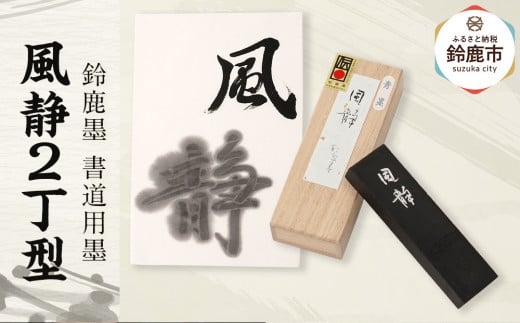 鈴鹿墨 書道用墨
風静2丁型
風
静
青墨
風静
風静
ふるさと納税
鈴鹿市
suzuka city